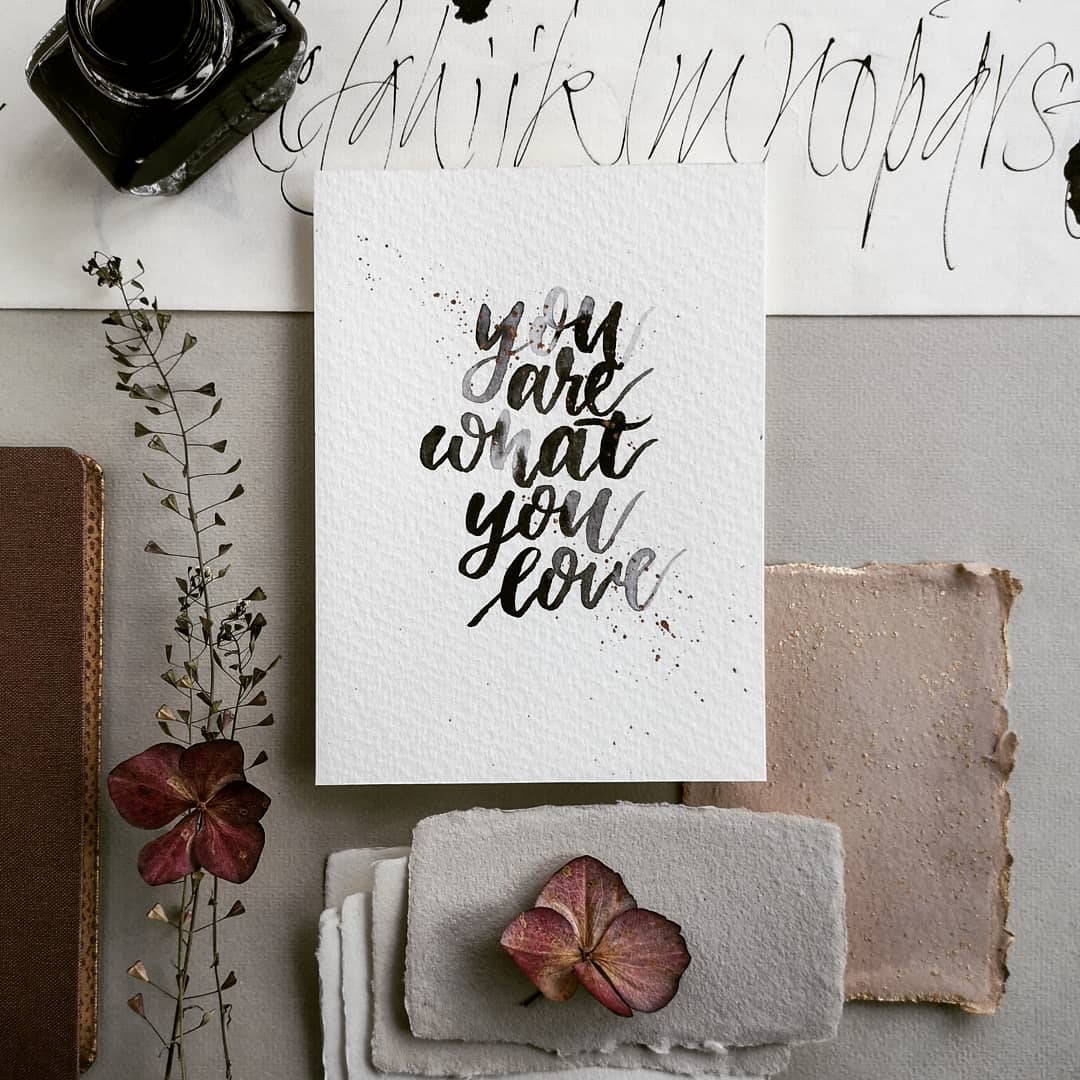 efghijklmnopqrs
you
are
what
you
love